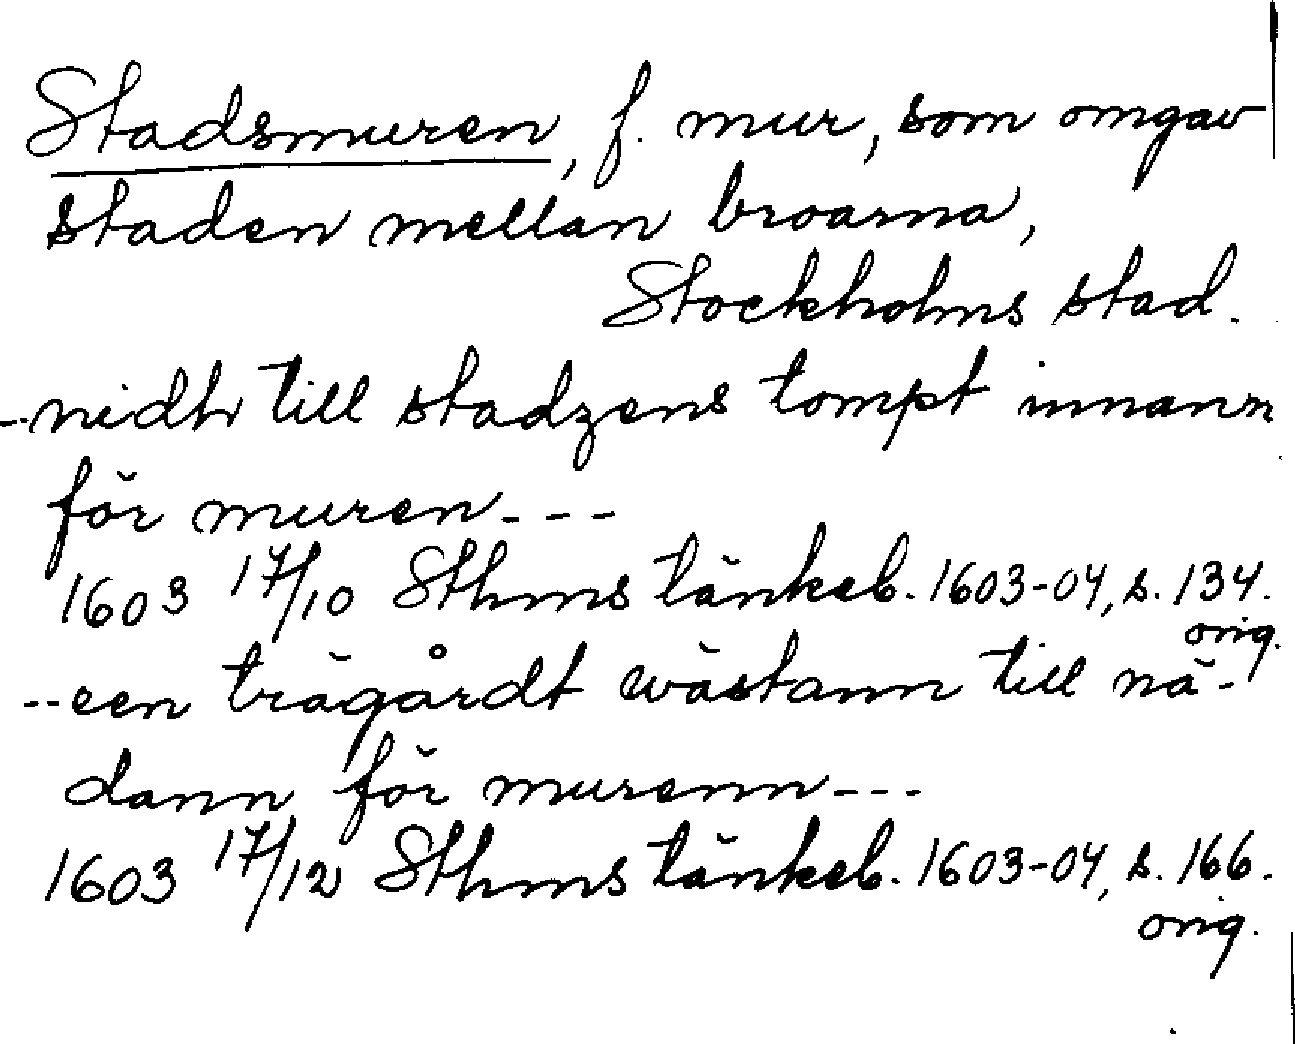 Stadsmuren, f. mur, som omgav
staden mellan broarna,
Stockholms stad.
--nidhr till stadzens tompt innann
för muren---
1603 17/10 Sthms tänkeb. 1603-04, s. 134.
orig.
--een trägårdt wästann till nä-
dann för murenn---
1603 17/12 Sthms tänkeb. 1603-04, s. 166.
orig.